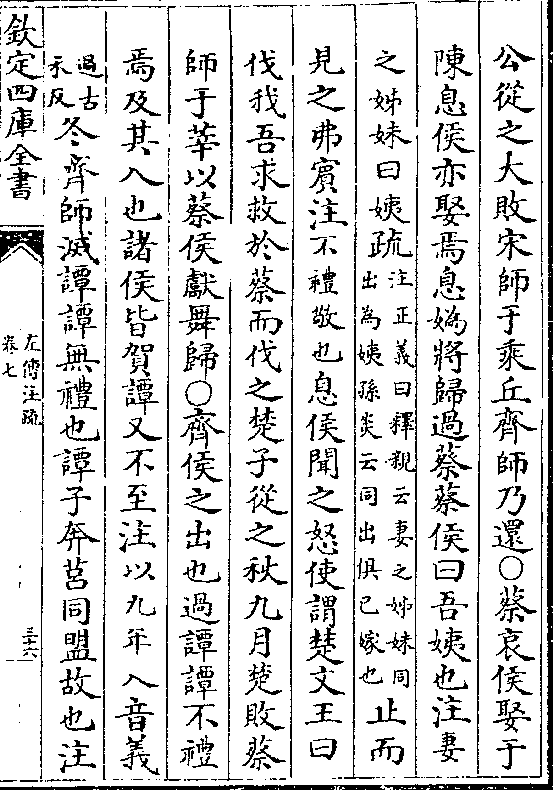 公從之大敗宋師于乘丘齊師乃還○蔡哀侯娶于
陳息侯亦娶焉息媯將歸過蔡蔡侯曰吾姨也注妻
之姊妹曰姨疏注正義曰釋親云妻之姊妹同出為姨孫炎云同出俱已嫁也止而
見之弗賓注不禮敬也息侯聞之怒使謂楚文王曰
伐我吾求救於蔡而伐之楚子從之秋九月楚敗蔡
師于莘以蔡侯獻舞歸○齊侯之出也過譚譚不禮
焉及其入也諸侯皆賀譚又不至注以九年入音義
過古禾反冬齊師滅譚譚無禮也譚子奔莒同盟故也注
欽定四庫全書
左傳注疏
卷七
三十六